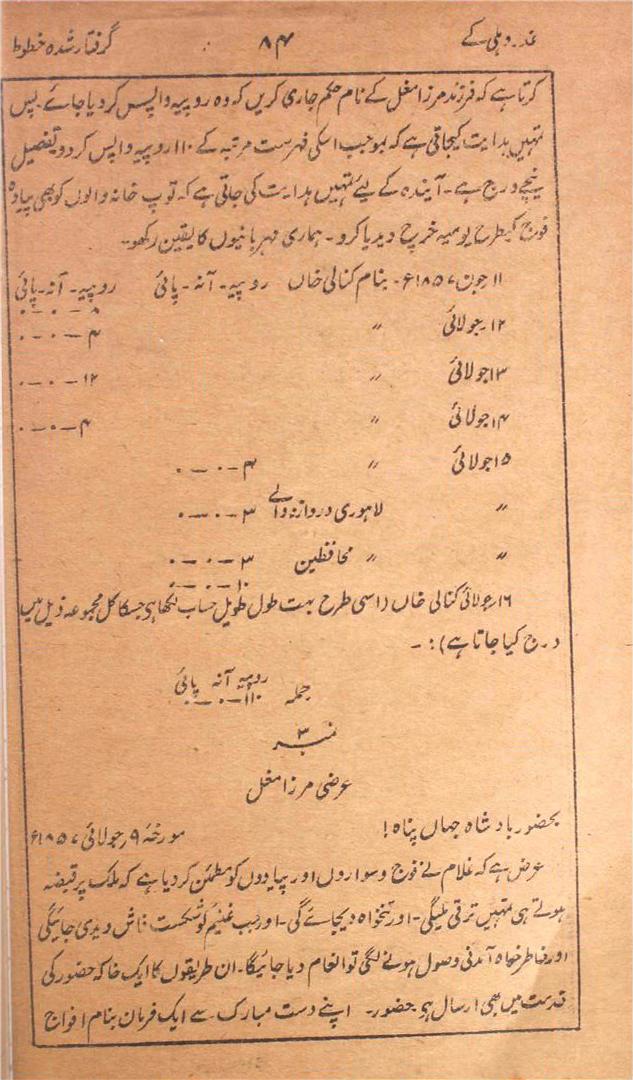 غدر دہلی کے ۸۴ گرفتار شدہ خطوط
کرتا ہے کہ فرزند مرزا مغل کے نام حکم جاری کریں کہ وہ روپیہ واپس کر دیا جائے۔ پس
تمہیں ہدایت کیجاتی ہے کہ بموجب اسکی فہرست مرتبہ کے ۱۱۰ روپیہ واپس کر دو تفصیل
نیچے درج ہے۔ آیندہ کے لیئے تمہیں ہدایت کی جاتی ہے کہ توپ خانہ والوں کو بھی پیادہ
فوج کیطرح یومیہ خرچ دیدیا کرو۔ ہماری مہربانیوں کا یقین رکھو۔
۱۱ جون ۱۸۵۷ء۔ بنام کنالی خاں روپیہ۔ آنہ۔ پائی روپیہ۔ آنہ۔ پائی
۸ – ۰ – ۰
۱۲۔ جولائی 〃 ۴ – ۰ – ۰
۱۳ جولائی 〃 ۱۲ – ۰ – ۰
۱۴ جولائی 〃 ۴ – ۰ – ۰
۱۵ جولائی 〃 ۴ – ۰ – ۰
〃 لاہوری دروازہ والے ۳ – ۰ – ۰
〃 〃 محافظین ۳ – ۰ – ۰
۱۰ – ۰ – ۰
۱۶ جولائی کنالی خاں (اسی طرح بہت طول طویل حساب لکھا ہی جسکا کل مجموعہ ذیل میں
درج کیا جاتا ہے): –
روپیہ آنہ پائی
جملہ ۱۱۰ – ۰ – ۰
نمبر ۳
عرضی مرزا مغل
بحضور بادشاہ جہاں پناہ! مورخہ ۹ جولائی ۱۸۵۷ء
عرض ہے کہ غلام نے فوج و سواروں اور پیادوں کو مطمئن کر دیا ہے کہ ملک پر قبضہ
ہوتے ہی تمہیں ترقی ملیگی۔ اور تنخواہ دیجائے گی۔ اور جب غنیم کو شکست فاش دیدی جائیگی
اور خاطر خواہ آمدنی وصول ہونے لگی تو انعام دیا جائیگا۔ ان طریقوں کا ایک خاکہ حضور کی
خدمت میں بھی ارسال ہو حضور۔ اپنے دست مبارک سے ایک فرمان بنام افواج